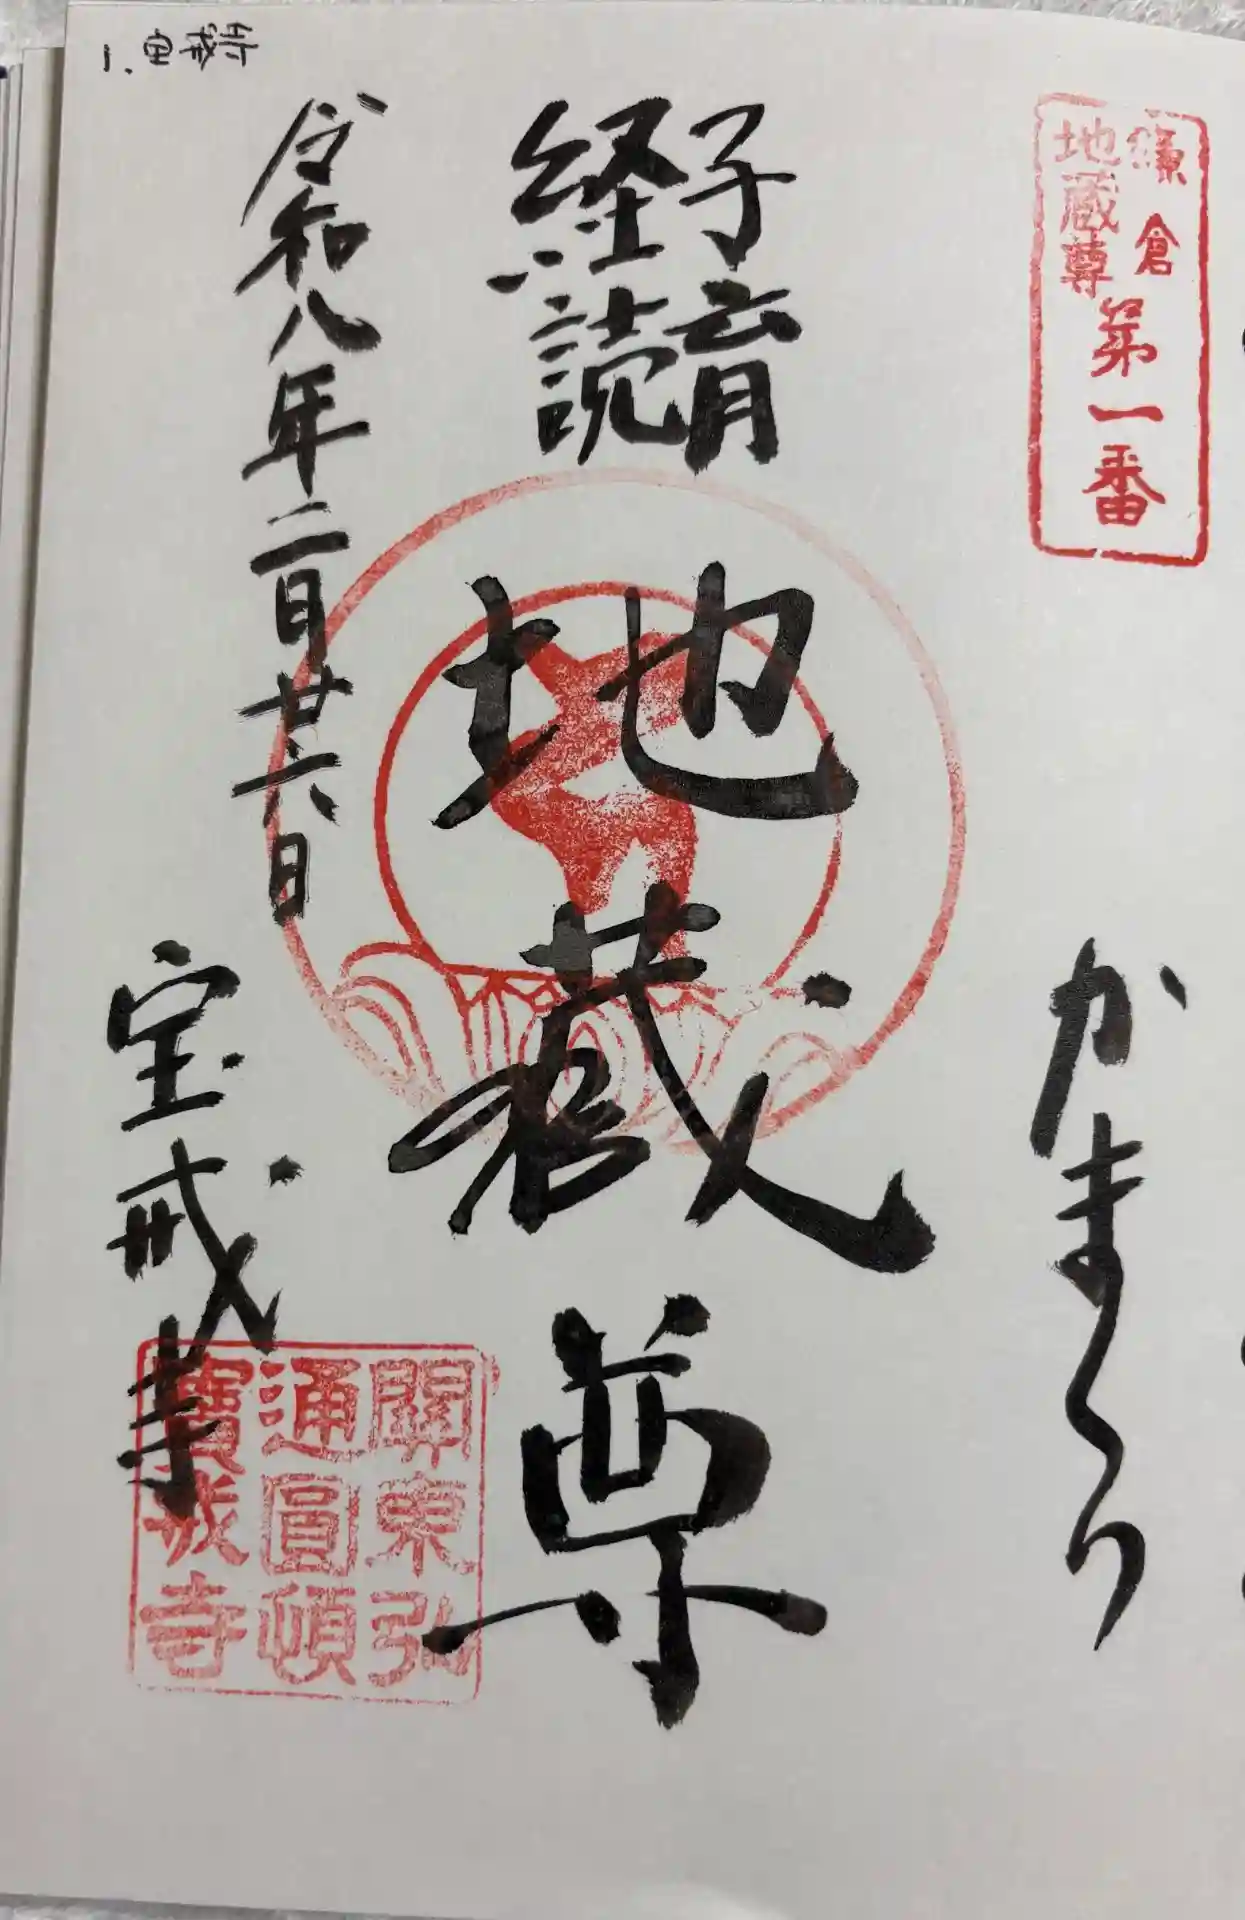 1.宝戒寺
鎌倉
地蔵尊
第一番
かまくら
子育
経読
地蔵尊
令和八年二月廿六日
宝戒寺
關東弘
通圓頓
寳戒寺